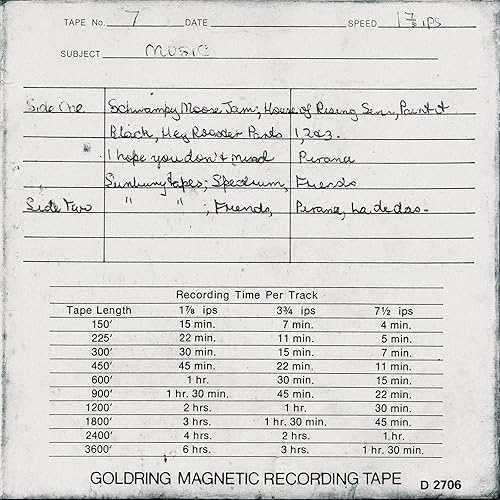 TAPE No. 7 DATE SPEED 1 7/8 IPS
SUBJECT MUSIC
Side One Schwampy Moose Jam; House of Rising Sun, Paint it
Black, Hey Rooster Parts 1, 2 & 3.
I hope you don't mind Pirana
Sunbury tapes; Spectrum, Friends
Side Two " " ; Friends, Pirana, La. de das.
Recording Time Per Track
Tape Length 1⅞ ips 3¾ ips 7½ ips
150' 15 min. 7 min. 4 min.
225' 22 min. 11 min. 5 min.
300' 30 min. 15 min. 7 min.
450' 45 min. 22 min. 11 min.
600' 1 hr. 30 min. 15 min.
900' 1 hr. 30 min 45 min. 22 min.
1200' 2 hrs. 1 hr. 30 min.
1800' 3 hrs. 1 hr. 30 min. 45 min.
2400' 4 hrs. 2 hrs. 1 hr.
3600' 6 hrs. 3 hrs. 1 hr. 30 min.
GOLDRING MAGNETIC RECORDING TAPE D 2706